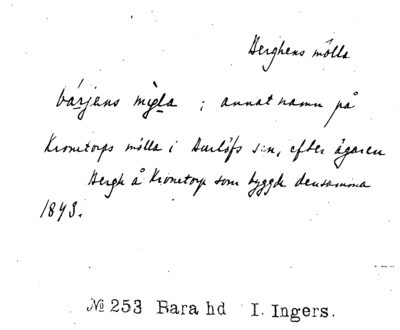 Berghens mölla
bárjans mỳla ; annat namn på
Kronetorps mölla i Burlöfs s:n, efter ägaren
Bergh å Kronetorp som byggde densamma
1843.
№ 253 Bara hd I. Ingers.